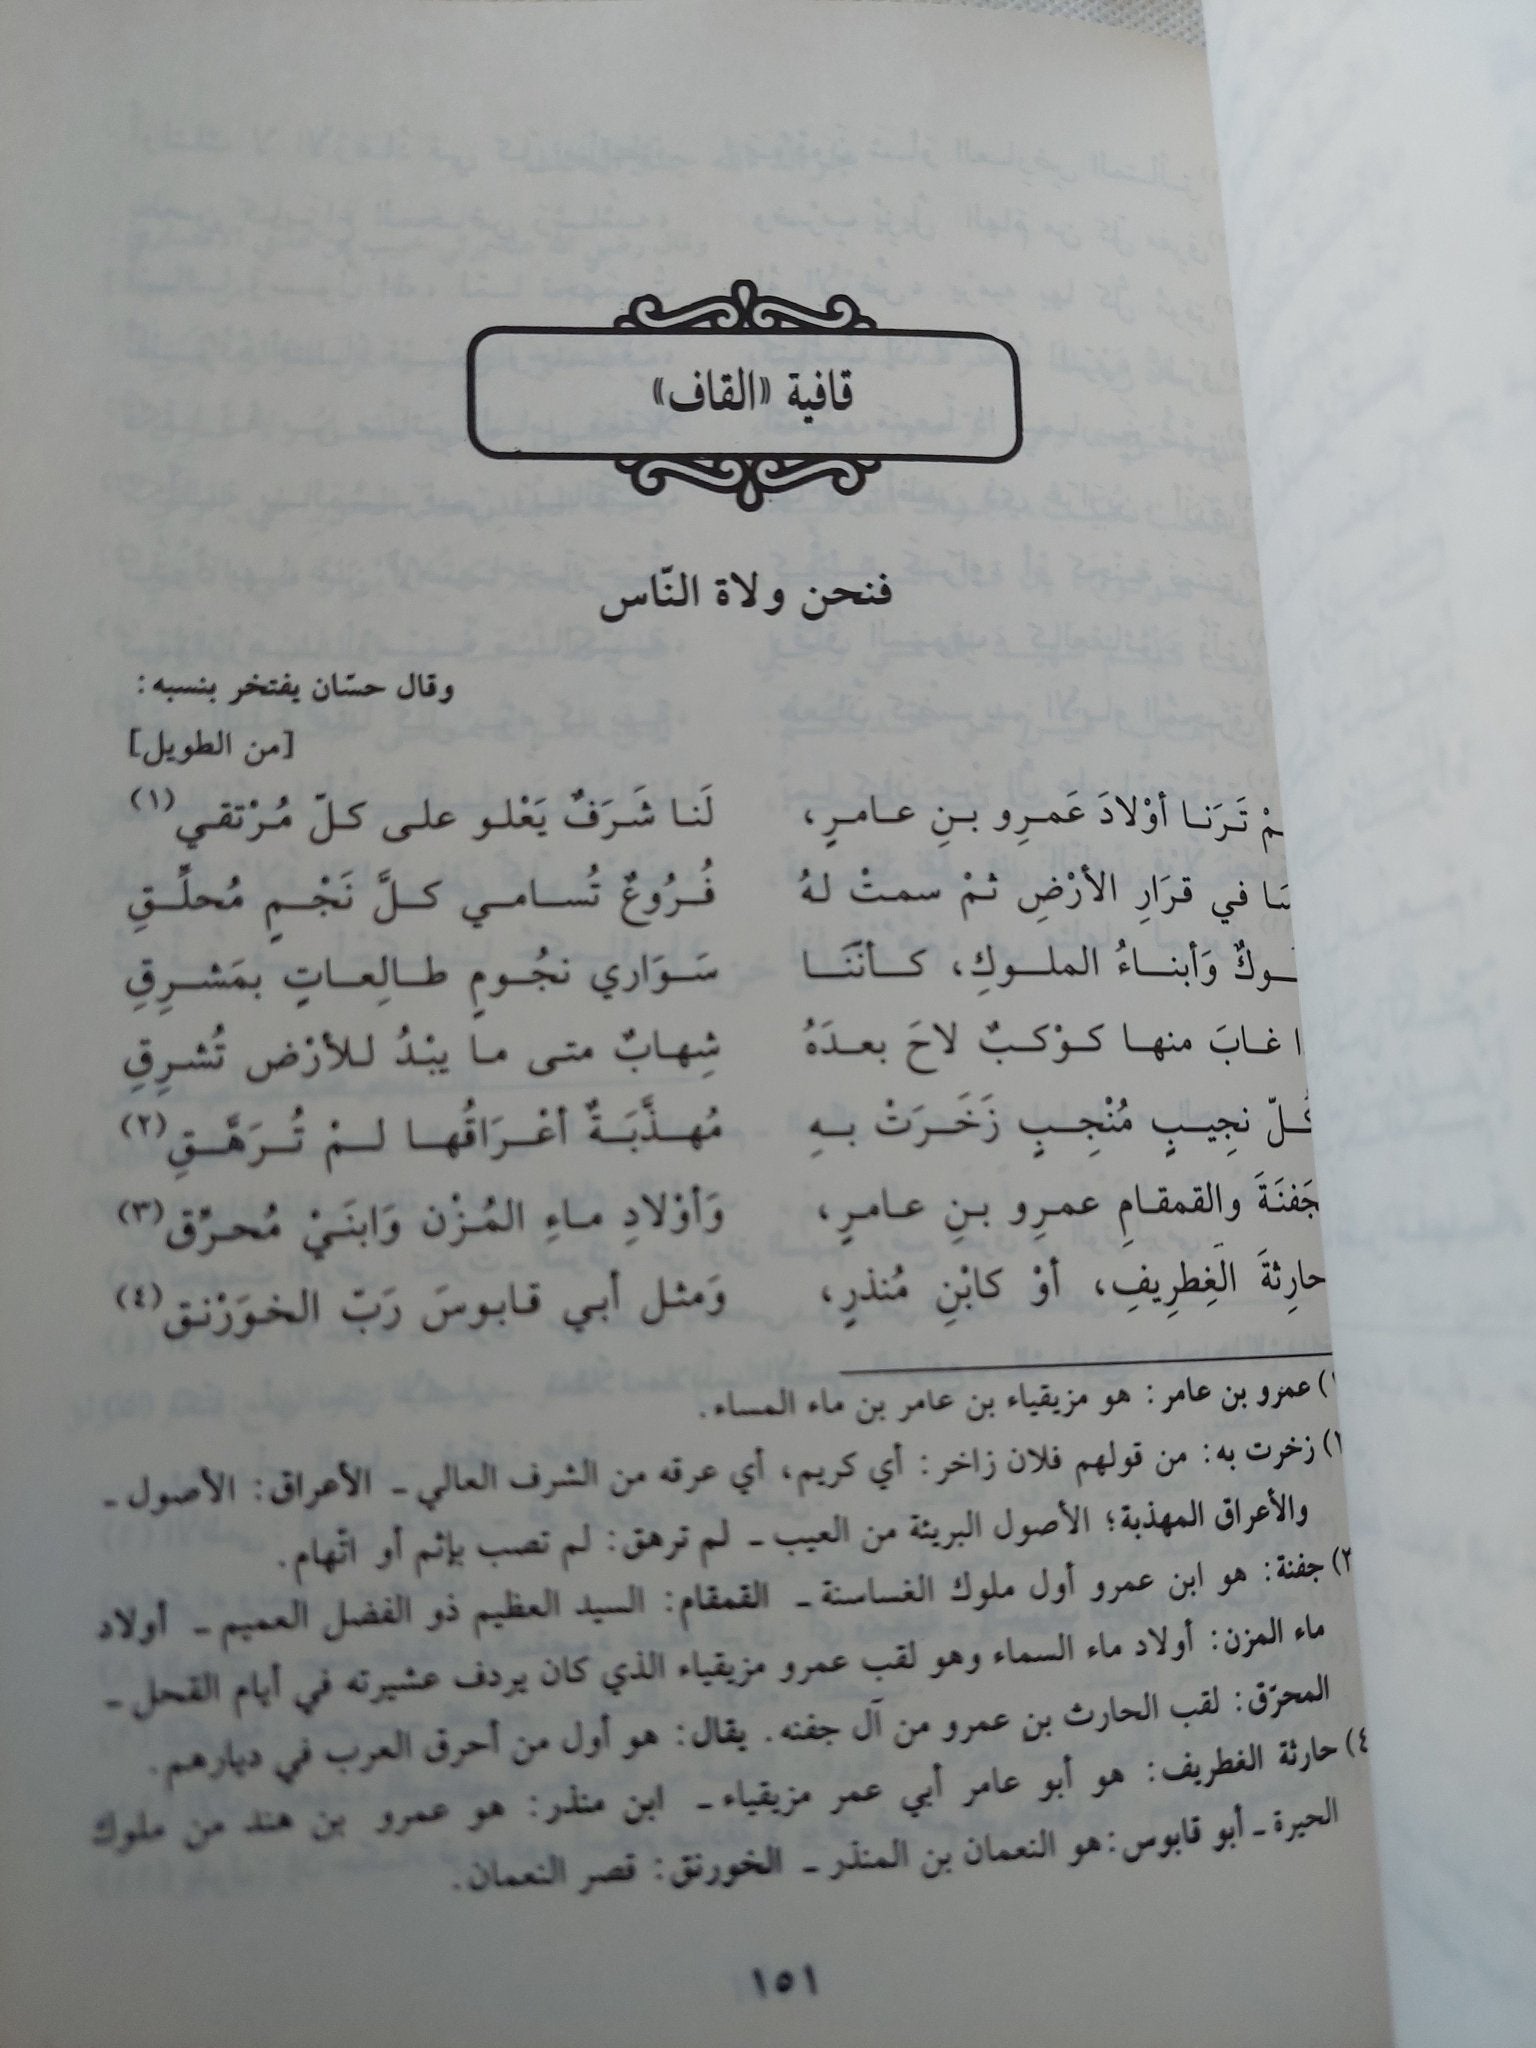 قافية «القاف»
فنحن ولاة النّاس
وقال حسّان يفتخر بنسبه:
[من الطويل]
تَرَنـا أوْلادَ عَمـرِو بـنِ عـامـرٍ، لَنـا شَـرَفٌ يَعْلـو علـى كـلّ مُـرْتقـي(١)
في قرَارِ الأرْضِ ثـمْ سمتْ لهُ فُـرُوعٌ تُسـامـي كـلَّ نَجْـمٍ مُحلِّـقِ
وَأبنـاءُ الملـوكِ، كـأنّنَـا سَـوَاري نجُـومٍ طـالِعـاتٍ بمَشـرِقِ
غـابَ منهـا كـوْكبٌ لاحَ بعـدَهُ شِهـابٌ متـى مـا يبْـدُ لـلأرْض تُشـرِقِ
نجيبٍ مُنْجِـبٍ زَخَـرَتْ بـهِ مُهـذَّبَـةٌ أعْـرَاقُهـا لـمْ تُـرَهَّـقِ(٢)
جَفنَةَ والقمقـامِ عمـرِو بـنِ عـامـرٍ، وَأوْلادِ مـاءِ المُـزْن وَابنَـيْ مُحـرِّق(٣)
حارِثةَ الغِطرِيفِ، أوْ كابْنِ مُنذرٍ، وَمثل أبي قابوسَ رَبّ الخوَرْنق(٤)
عمرو بن عامر: هو مزيقياء بن عامر بن ماء المساء.
زخرت به: من قولهم فلان زاخر: أي كريم، أي عرقه من الشرف العالي ـ الأعراق: الأصول ـ
والأعراق المهذبة؛ الأصول البريئة من العيب ـ لم ترهق: لم تصب بإثم أو اتّهام.
جفنة: هو ابن عمرو أول ملوك الغساسنة ـ القمقام: السيد العظيم ذو الفضل العميم ـ أولاد
ماء المزن: أولاد ماء السماء وهو لقب عمرو مزيقياء الذي كان يردف عشيرته في أيام القحل ـ
المحرّق: لقب الحارث بن عمرو من آل جفنه. يقال: هو أول من أحرق العرب في ديارهم.
٤) حارثة الغطريف: هو أبو عامر أبي عمر مزيقياء ـ ابن منذر: هو عمرو بن هند من ملوك
الحيرة ـ أبو قابوس: هو النعمان بن المنذر ـ الخورنق: قصر النعمان.
١٥١